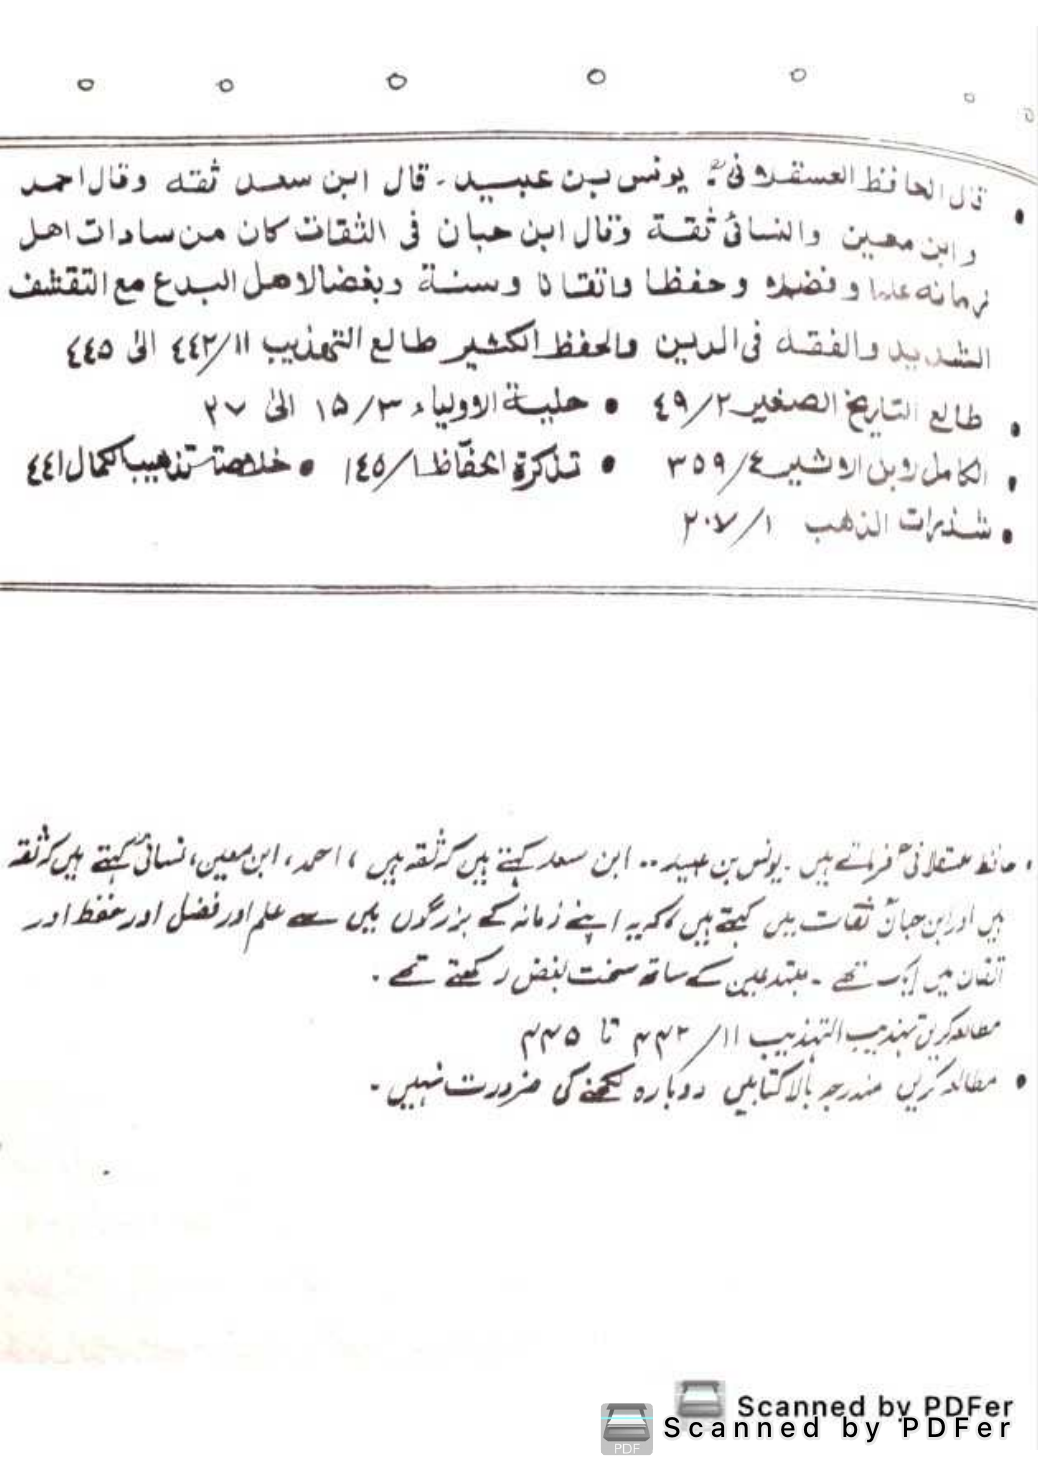 • قال الحافظ العسقلانیؒ: یونس بن عبید۔ قال ابن سعد ثقہ وقال احمد
وابن معین والنسائی ثقة وقال ابن حبان فی الثقات کان من سادات اهل
زمانه علما وفضلا وحفظا واتقانا وسنة وبغضا لاهل البدع مع التقشف
الشدید والفقه فی الدین والحفظ الکثیر طالع التهذیب ۱۱/٤٤۲ الی ٤٤٥
• طالع التاریخ الصغیر ۲/٤۹ • حلیة الاولیاء ۳/۱٥ الی ۲۷
• الکامل لابن الاثیر ٤/۳٥۹ • تذکرة الحفاظ ۱/۱٤٥ • خلاصة تذهیب الکمال ٤٤۱
• شذرات الذهب ۱/۲۰۷
• حافظ عسقلانیؒ فرماتے ہیں۔ یونس بن عبید .. ابن سعد کہتے ہیں کہ ثقہ ہیں، احمد، ابن معین، نسائیؒ کہتے ہیں کہ ثقہ
ہیں اور ابن حبانؒ ثقات میں کہتے ہیں کہ یہ اپنے زمانہ کے بزرگوں میں سے علم اور فضل اور حفظ اور
اتقان میں ایک تھے۔ مبتدعین کے ساتھ سخت بغض رکھتے تھے۔
مطالعہ کریں تہذیب التہذیب ۱۱/۴۴۲ تا ۴۴۵
• مطالعہ کریں مندرجہ بالا کتابیں دوبارہ لکھنے کی ضرورت نہیں۔
Scanned by PDFer
PDF Scanned by PDFer